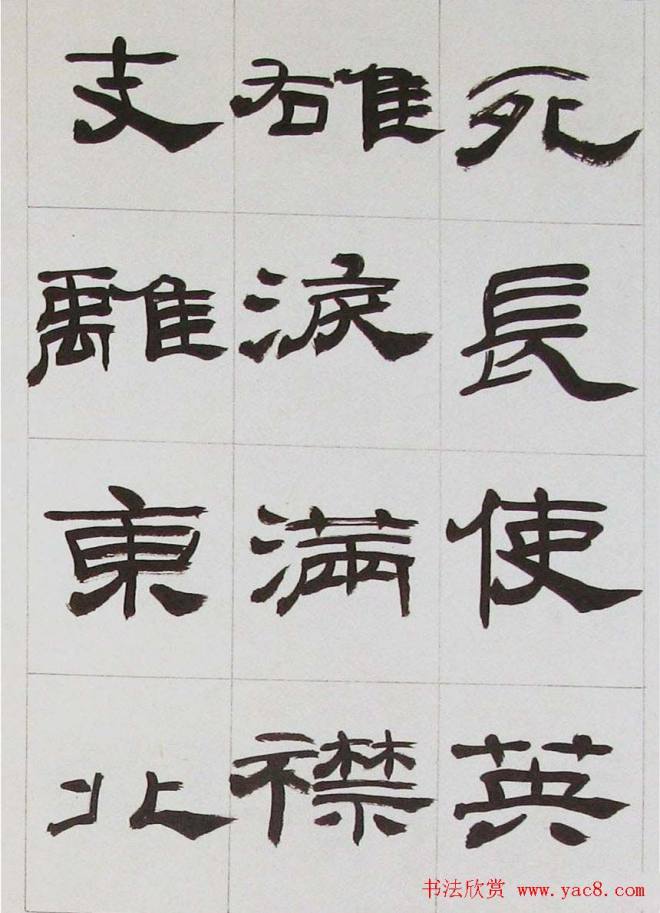 死長使英
雄淚滿襟
支離東北
书法欣赏 www.yac8.com